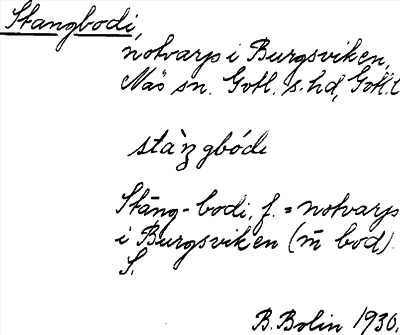 Stangbodi,
notvarp i Burgsviken,
Näs sn. Gotl. s. hd, Gotl. l
stàŋgbóde
Stāng-bodi, f. = notvarp
i Burgsviken (m̄ bod).
S.
B. Bolin 1930.